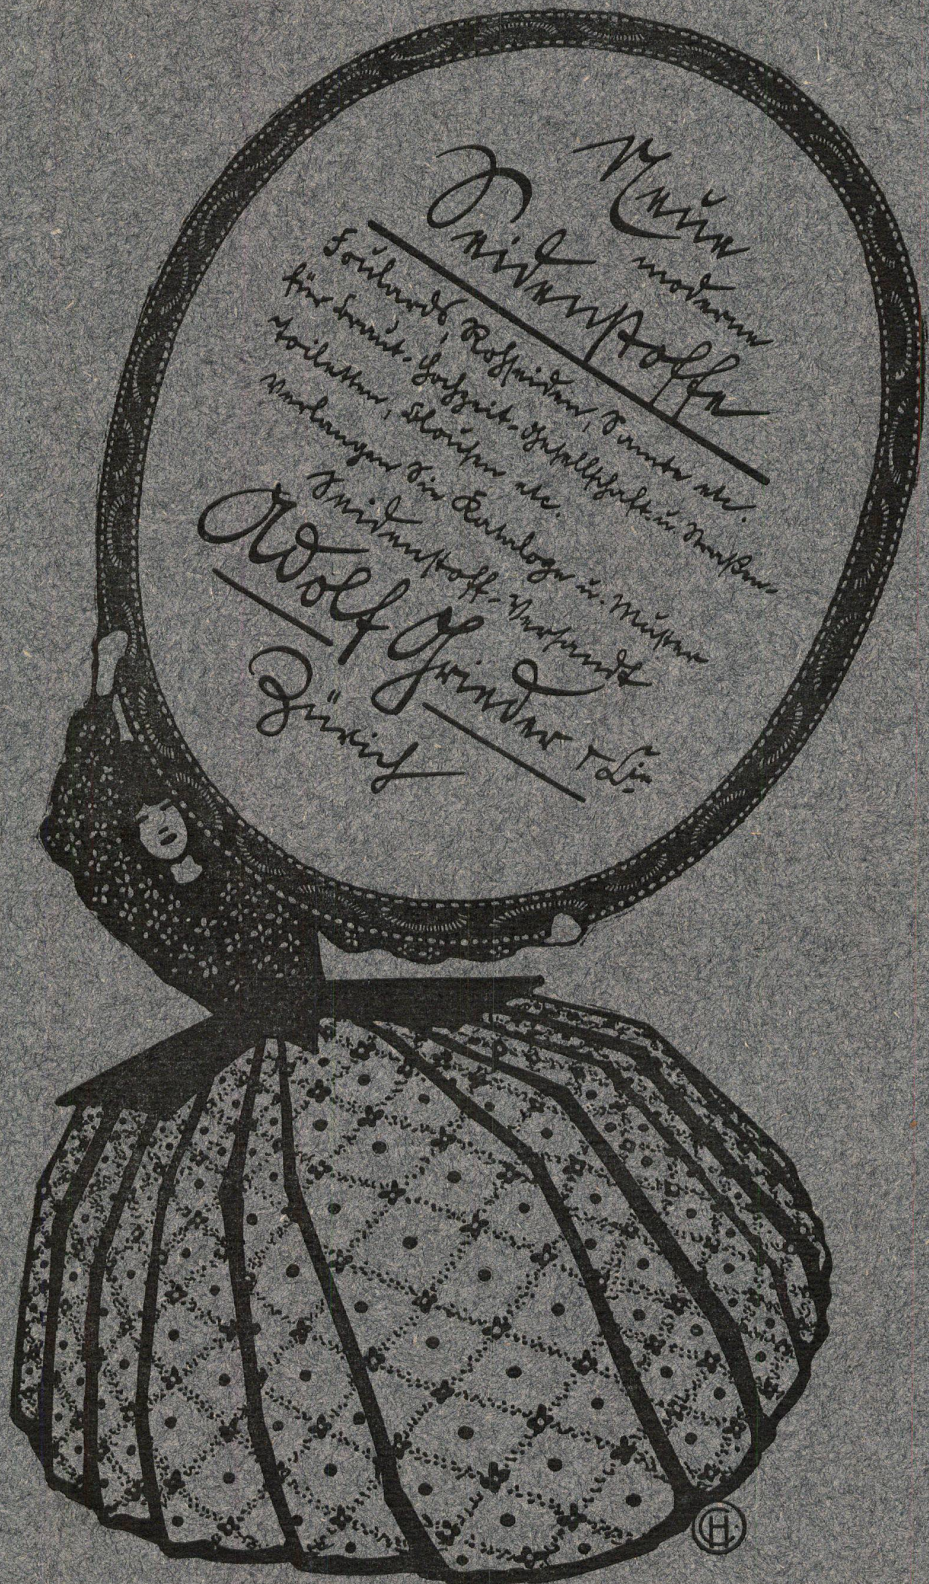 Neue
moderne
Seidenstoffe
Foulards, Rohseiden, Samte etc.
für Braut-Hochzeit-Gesellschaft- u. Straßen-
toiletten, Blousen etc.
Verlangen Sie Kataloge u. Muster
Seidenstoff-Versandt
Adolf Grieder & Cie
Zürich
CH